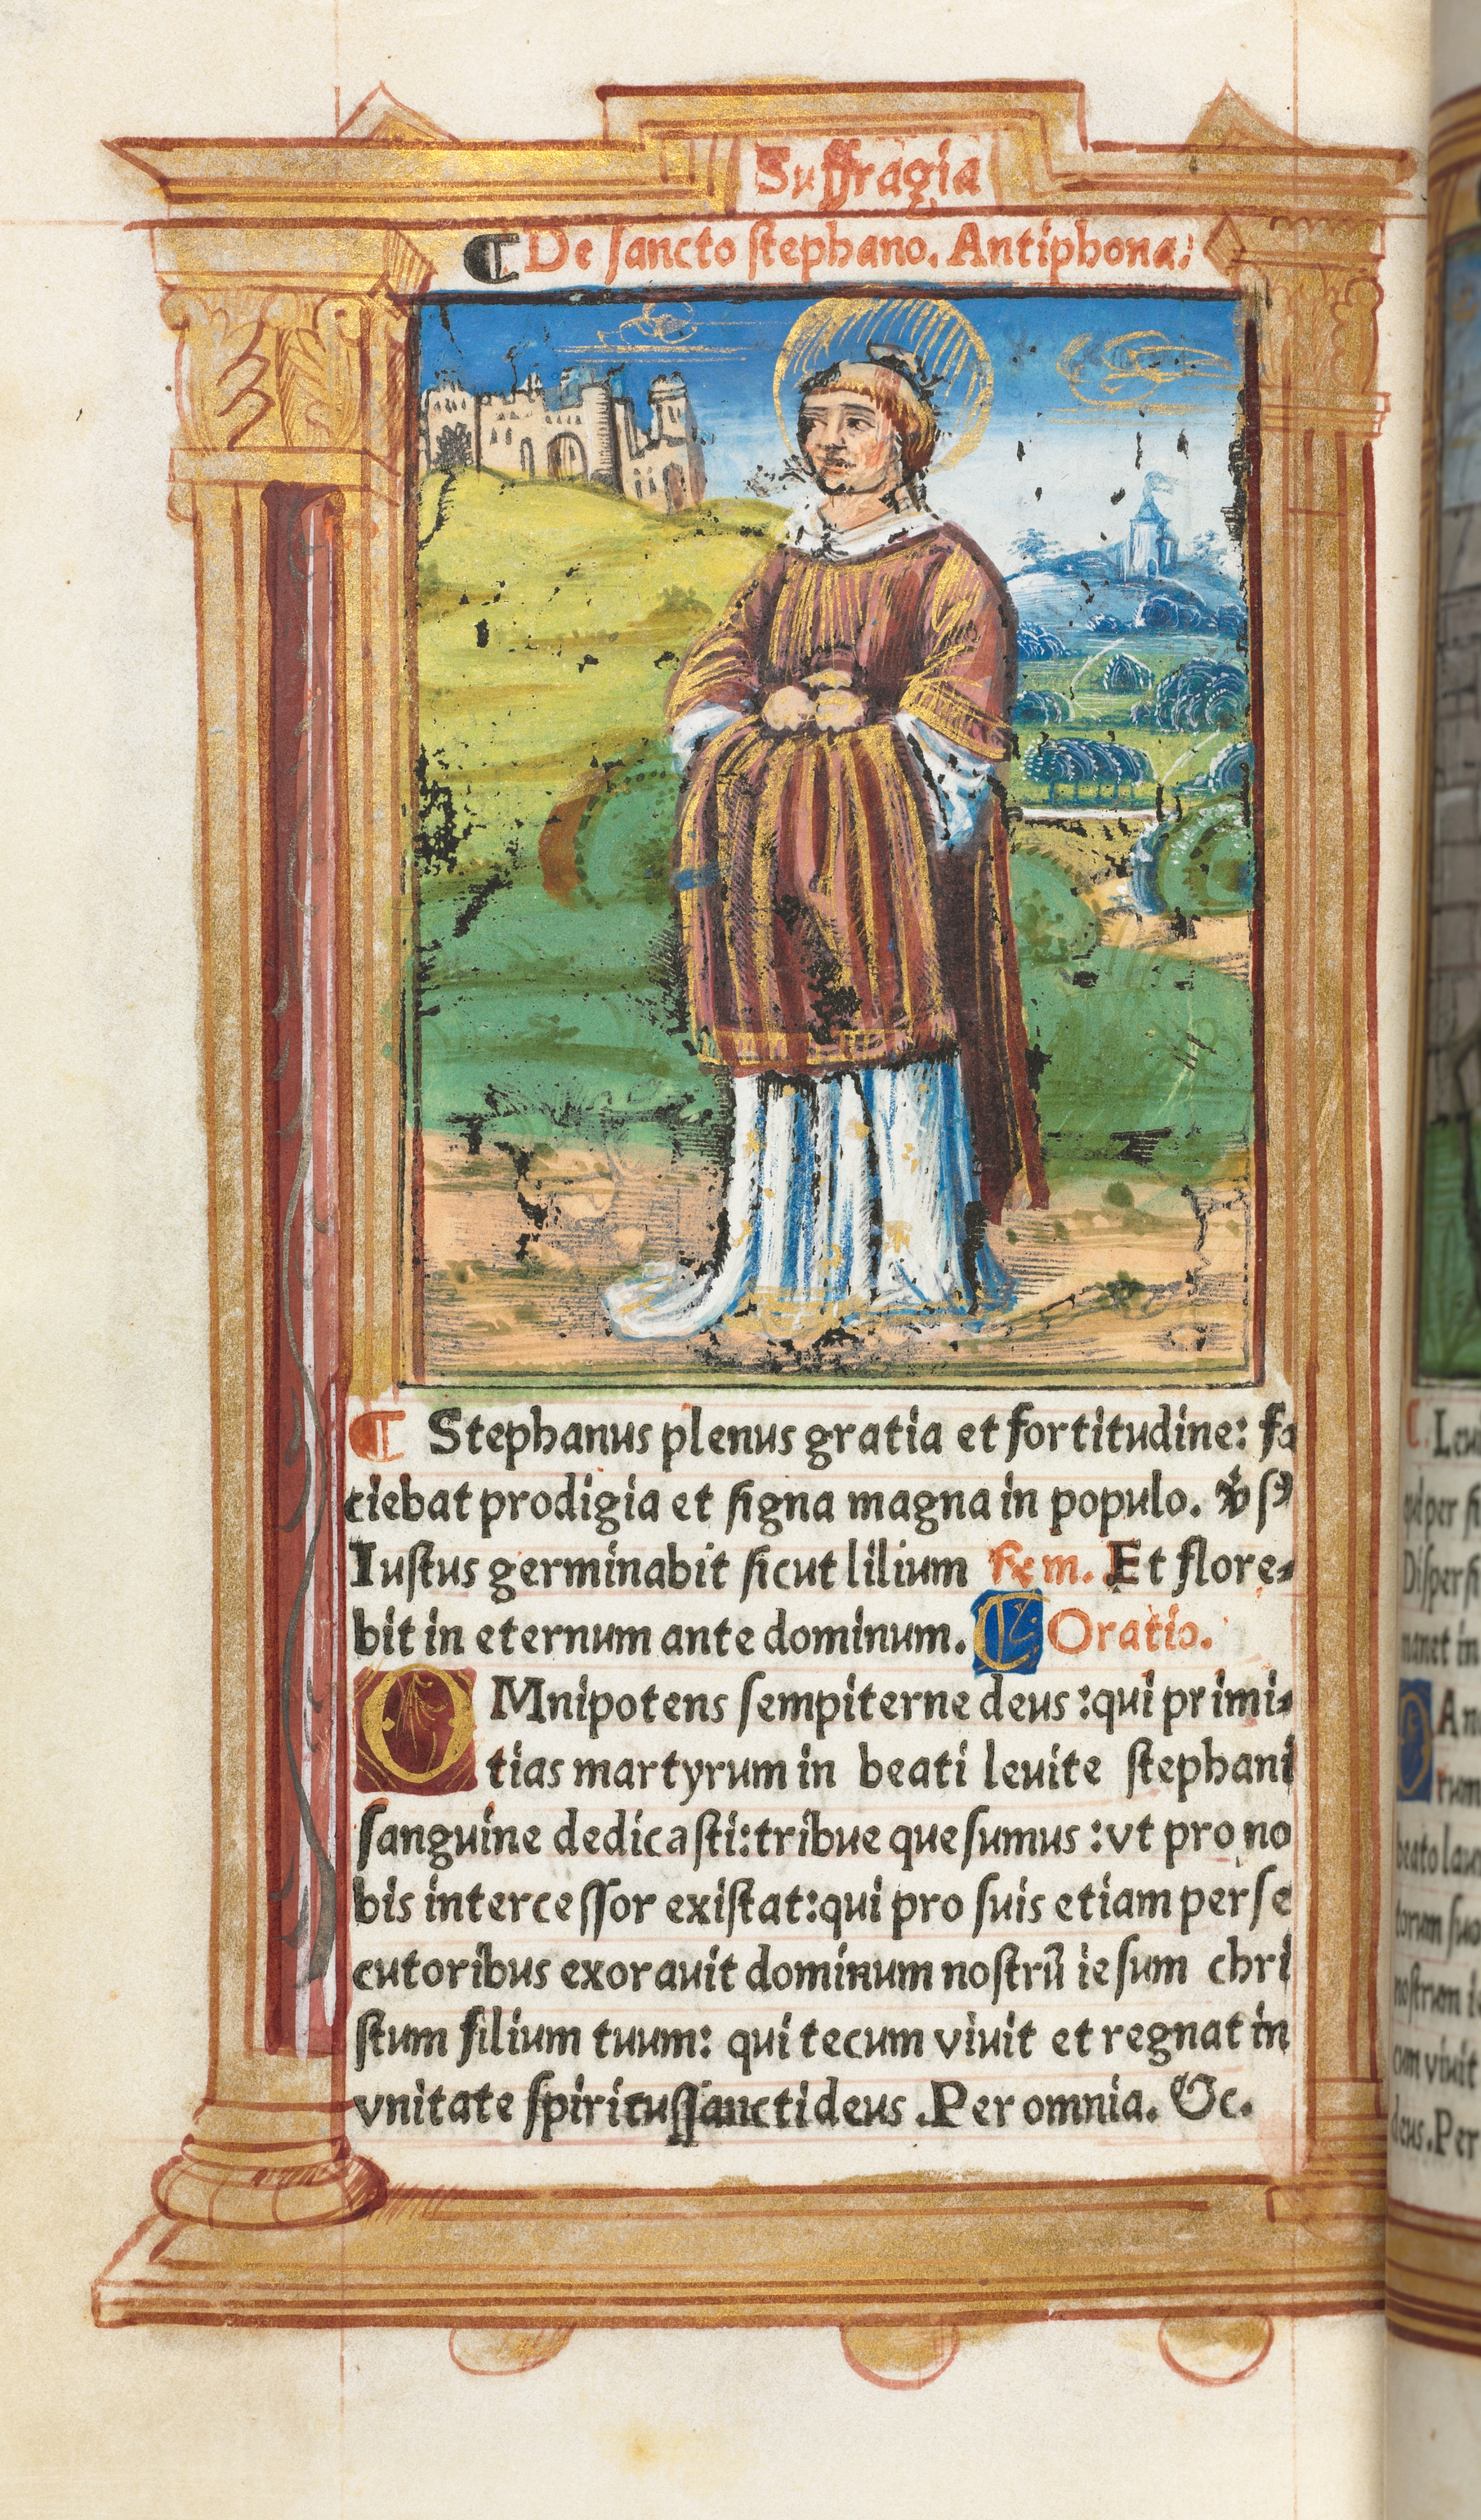 Suffragia
¶ De sancto stephano. Antiphona:
¶ Stephanus plenus gratia et fortitudine: fa
ciebat prodigia et signa magna in populo.
Iustus germinabit sicut lilium Et flore-
bit in eternum ante dominum. ¶ Oratio.
OMnipotens sempiterne deus :qui primi-
tias martyrum in beati leuite stephani
sanguine dedicasti:tribue quesumus :vt pro no
bis intercessor existat:qui pro suis etiam perse
cutoribus exorauit dominum nostrū iesum chri
stum filium tuum: qui tecum viuit et regnat in
vnitate spiritussancti deus .Per omnia. &c.
Leu
Disper
manet in
An
rum
beato lau
torum suo
nostrum i
cum viuit
deus.Per